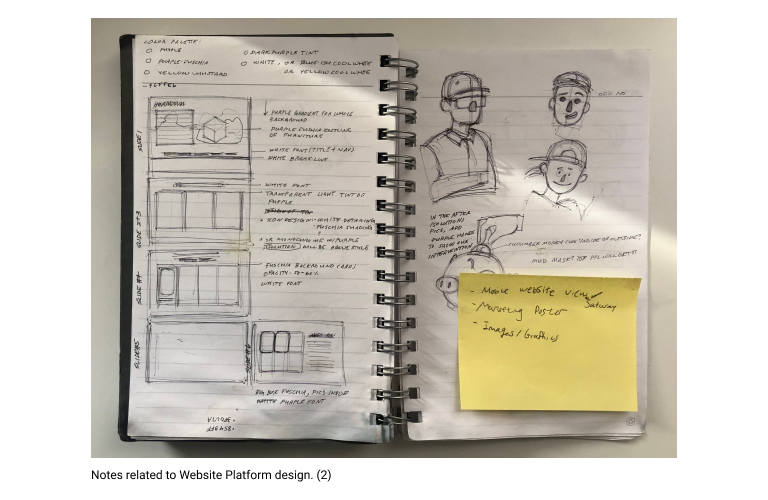 COLOR PALETTE:
○ PURPLE
○ PURPLE FUSCHIA
○ YELLOW MUSTARD
○ DARK PURPLE TINT
○ WHITE, OR BLUE-ISH COOL WHITE
OR YELLOW COOL WHITE
SLIDE 1
PURPLE GRADIENT FOR WHOLE
BACKGROUND
PURPLE FUSCHIA OUTLINE
OF FURNITURE
WHITE FONT (TITLE + NAV)
WHITE BREAK LINE
SLIDE 2+3
WHITE FONT
TRANSPARENT LIGHT TINT OF
PURPLE
ICON DESIGN: - WHITE OUTLINING
- FUSCHIA SHADING
SOLUTION WILL BE ABOVE STYLE
SLIDE #4
FUSCHIA BACKGROUND CARD
OPACITY:
WHITE FONT
SLIDE #5
BIG BOX FUSCHIA, PICS INSIDE
WHITE PURPLE FONT
IN THE AFTER
(SOLUTION)
PICS, ADD
PURPLE HANDS
TO SHOW OUR
INTERVENTION
- Mobile website view
Subway
- Marketing Poster
- Images/Graphics
Notes related to Website Platform design. (2)